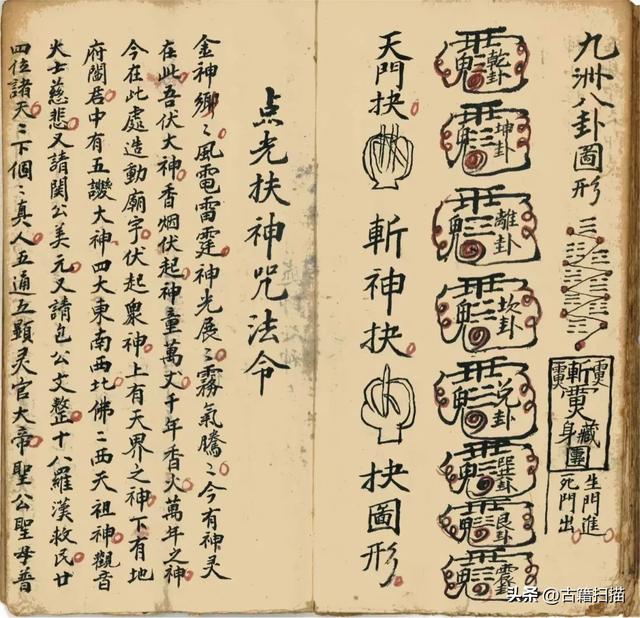 九洲八卦圖形
斬
藏身圖
生門進
死門出
乾卦
坤卦
離卦
坎卦
兌卦
巽卦
艮卦
震卦
天門抉
斬神抉
抉圖形
点光扶神咒法令
金神鄉〻風電雷霆神光展〻霧氣騰〻今有神灵
在此吾伏大神香烟伏起神童萬丈千年香火萬年之神
今在此處造動廟宇伏起衆神上有天界之神下有地
府閻君中有五讖大神四大東南西北佛〻西天祖神觀音
大士慈悲又請関公美元又請包公文整十八羅漢救民廿
四位諸天〻下個〻真人五通五顕灵官大帝聖公聖母普
头条 @古籍扫描